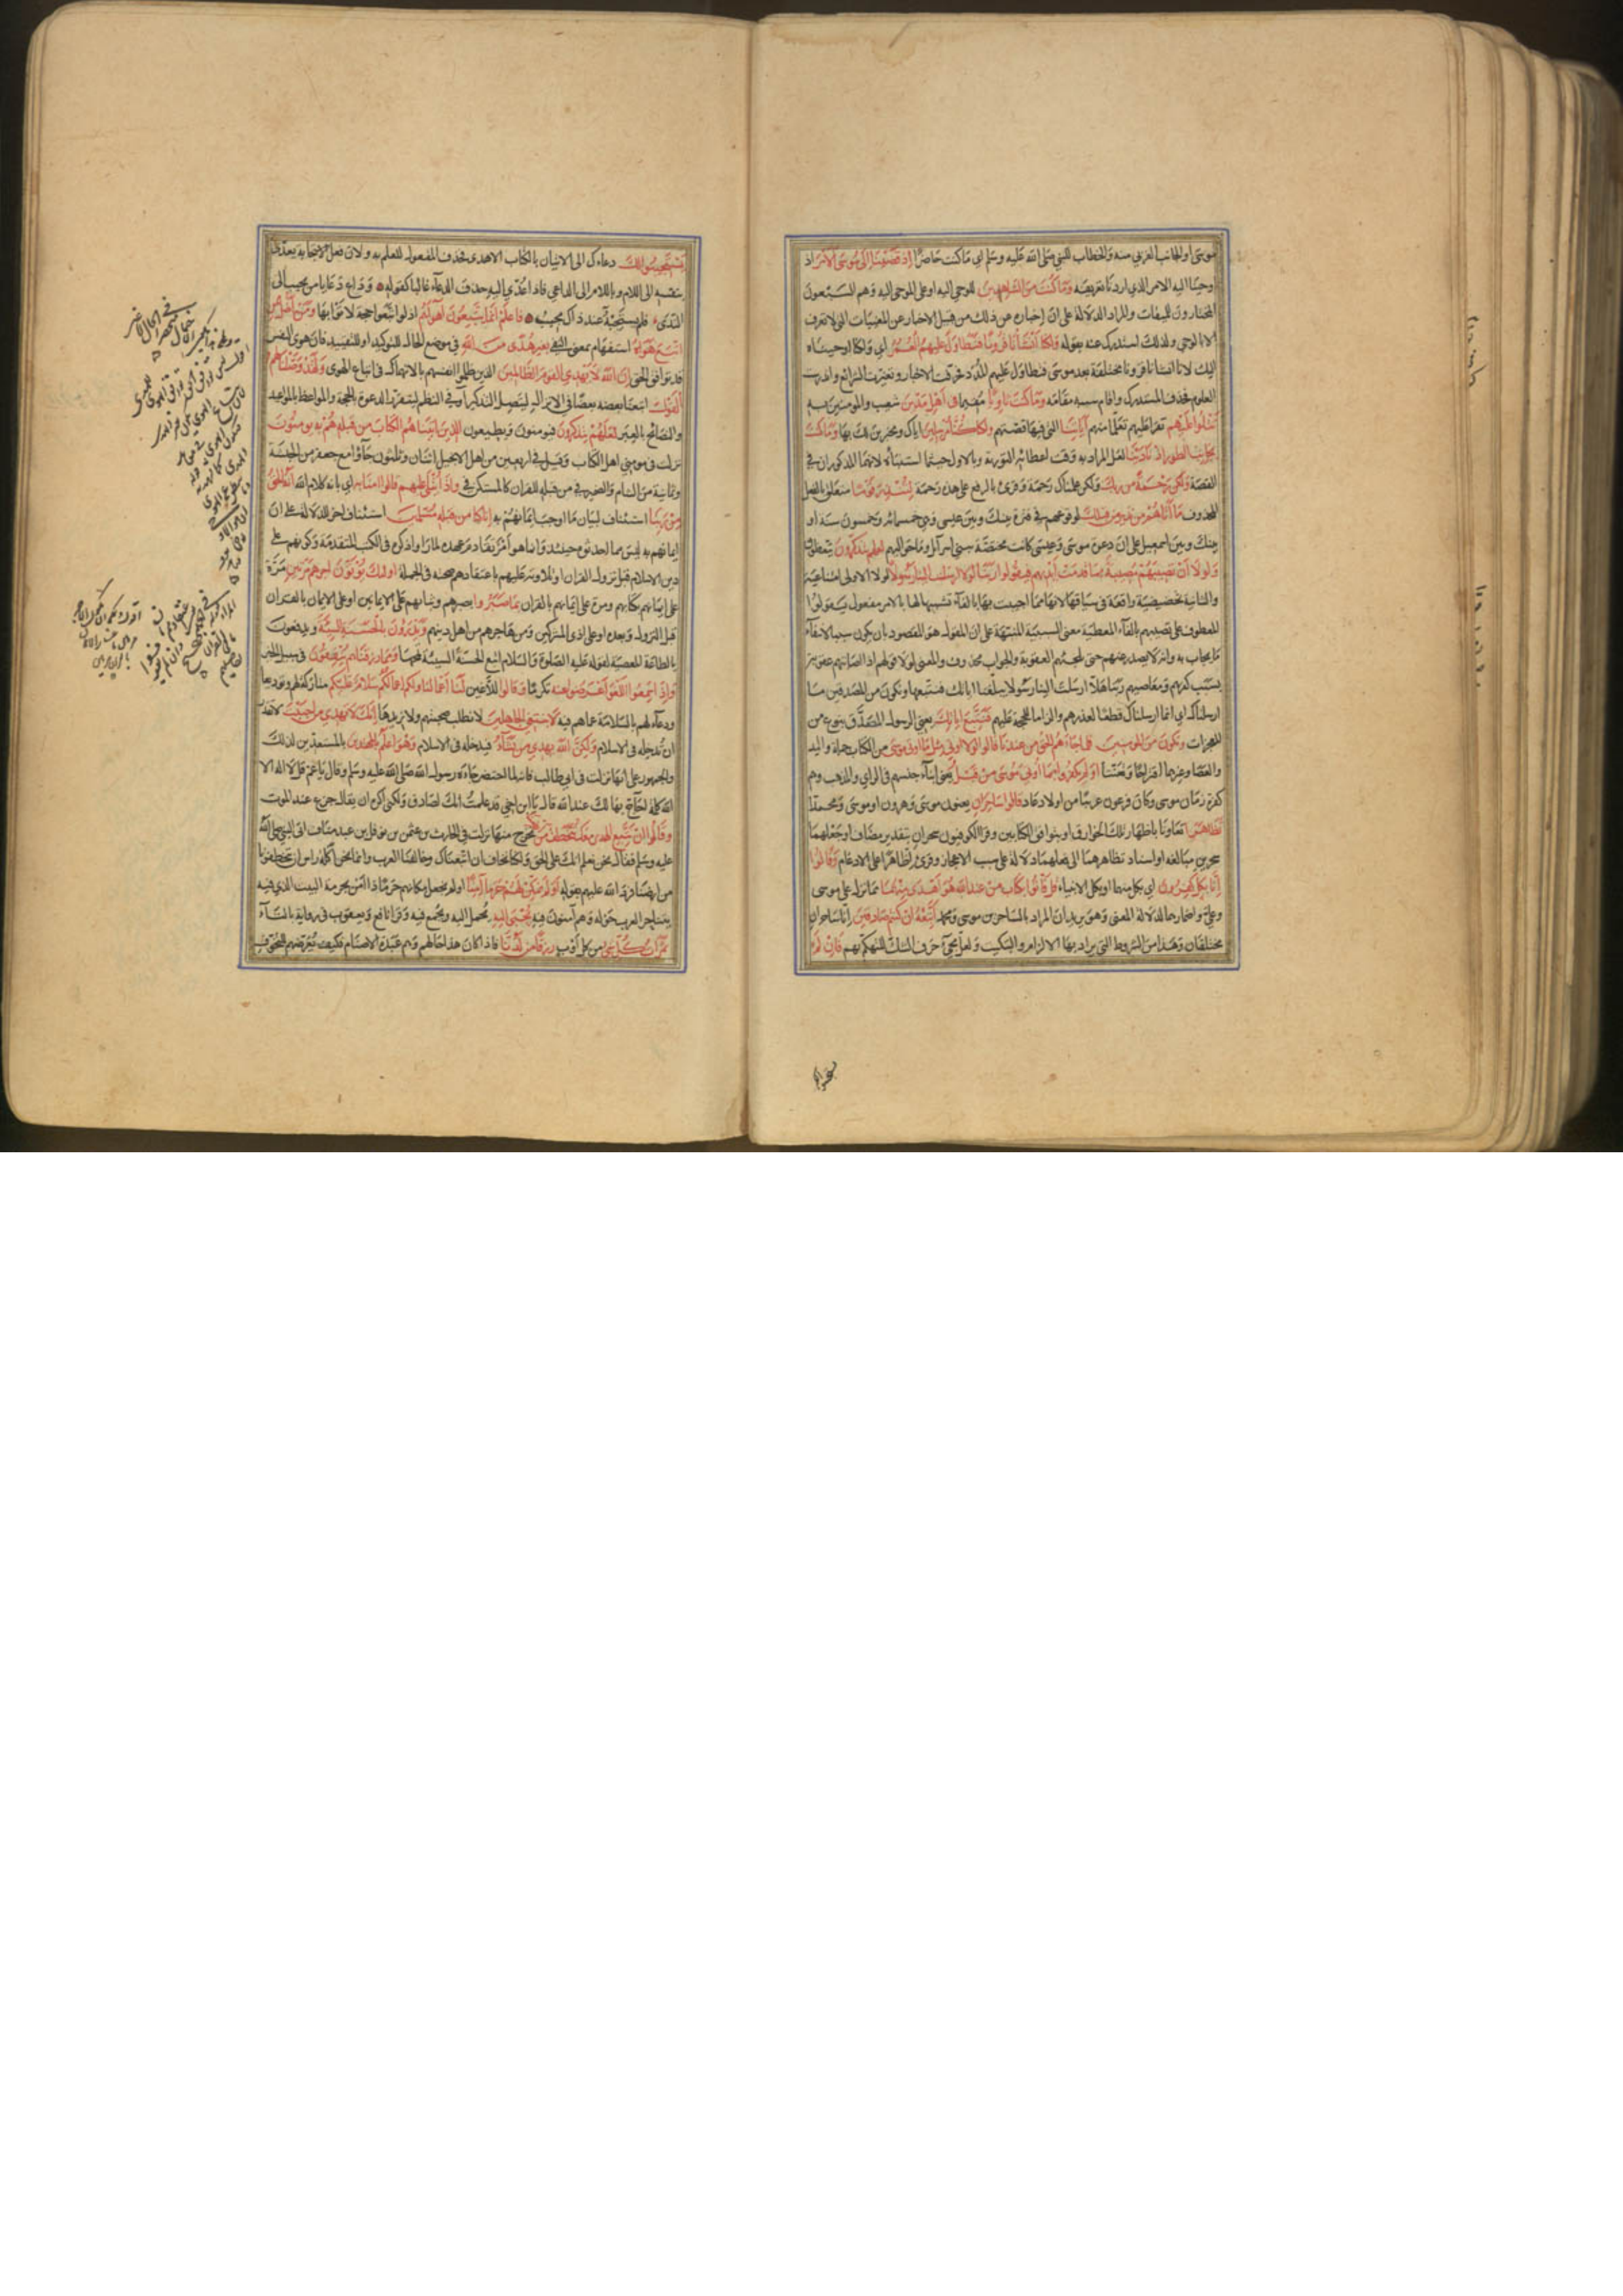 موسى او الجانب الغربي منه والخطاب للنبي صلى الله عليه وسلم اي ما كنت حاضرا اذ قضينا الى موسى الامر اذ
اوحينا اليه الامر الذي اردنا تعريفه وما كنت من الشاهدين للوحي اليه او على الموحى اليه وهم السبعون
المختارون للميقات والمراد الدلالة على ان إخباره عن ذلك من قبيل الاخبار عن المغيبات التي لا تعرف
الا بالوحي ولذلك استدرك عنه بقوله ولكنا أنشأنا قرونا فتطاول عليهم العمر اي ولكنا اوحيناه
اليك لانا انشأنا قرونا مختلفة بعد موسى فتطاول عليهم المدد فحرفت الاخبار وتغيرت الشرائع واندرست
العلوم فحذف المستدرك واقام سببه مقامه وما كنت ثاويا مقيما في اهل مدين شعيب والمومنين به
تتلوا عليهم تقرا عليهم تعلما منهم آياتنا التي فيها قصتهم ولكنا كنا مرسلين اياك ومخبرين لك بها وما كنت
بجانب الطور اذ نادينا لعل المراد به وقت اعطائه التورية وبالاول حيثما استنبأه لانهما المذكوران في
القصة ولكن رحمة من ربك ولكن علمناك رحمة وقرئ بالرفع على هذه رحمة لتنذر قوما متعلق بالفعل
المحذوف ما أتاهم من نذير من قبلك لوقوعهم في فترة بينك وبين عيسى وهي خمسمائة وخمسون سنة او
بينك وبين اسمعيل على ان دعوة موسى وعيسى كانت مختصة ببني اسرآئل وما حواليهم لعلهم يتذكرون يتعظون
ولولا أن تصيبهم مصيبة بما قدمت أيديهم فيقولوا ربنا لولا ارسلت الينا رسولا لولا الاولى امتناعية
والثانية تحضيضية واقعة في سياقها لانها مما اجيبت بها بالفآء تشبيها لها بالامر مفعول يقولوا
المعطوف على تصيبهم بالفآء المعطية معنى السببية المنبهة على ان القول هو المقصود بان يكون سببا لانتفآء
ما يجاب به وانه لا يصدر عنهم حتى تلجئهم العقوبة والجواب محذوف والمعنى لولا قولهم اذا اصابتهم عقوبة
بسبب كفرهم ومعاصيهم ربنا هلا ارسلت الينا رسولا يبلغنا اياتك فنتبعها ونكون من المصدقين ما
ارسلناك اي انما ارسلناك قطعا لعذرهم والزاما للحجة عليهم فنتبع اياتك يعني الرسول المصدق بنوع من
المعجزات ونكون من المومنين فلما جاءهم الحق من عندنا قالوا لولا اوتي مثل ما اوتي موسى من الكتاب جملة واليد
والعصا وغيرها اقتراحا وتعنتا اولم يكفروا بما أوتي موسى من قبل يعني ابنآء جنسهم في الراي والمذهب وهم
كفرة زمان موسى وكان فرعون عربيا من اولاد عاد قالوا ساحران يعنون موسى وهرون او موسى ومحمدا
تظاهرا تعاونا باظهار تلك الخوارق او بتوافق الكتابين وقرا الكوفيون سحران بتقدير مضاف او جعلهما
سحرين مبالغة او اسناد تظاهرهما الى فعلهما دلالة على سبب الاعجاز وقرئ اظاهرا على الادغام وقالوا
إنا بكل كافرون اي بكل منهما او بكل الانبياء قل فأتوا بكتاب من عند الله هو أهدى منهما مما نزل على موسى
وعلي واضمارهما لدلالة المعنى وهو يؤيد ان المراد بالساحرين موسى ومحمد أتبعه ان كنتم صادقين إنا ساحران
مختلقان وهذا من الشروط التي يراد بها الالزام والتبكيت ولعل مجيء حرف الشك للتهكم بهم فان لم
يستجيبوا لك دعاءك الى الاتيان بالكتاب الاهدى فحذف المفعول للعلم به ولان فعل الاستجابة يعدى
بنفسه الى الدعاء وباللام الى الداعي فاذا عدي اليه حذف الدعاء غالبا كقوله وداع دعا يا من يجيب الى
الندى فلم يستجبه عند ذاك مجيب فاعلم انما يتبعون أهوآءهم اذ لو اتبعوا حجة لاتوا بها ومن أضل ممن
اتبع هواه استفهام بمعنى النفي بغير هدى من الله في موضع الحال للتوكيد او للتقييد فان هوى النفس
قد يوافق الحق إن الله لا يهدي القوم الظالمين الذين ظلموا انفسهم بالانهماك في اتباع الهوى ولقد وصلنا لهم
القول اتبعنا بعضه بعضا في الانزال ليتصل التذكير او في النظم ليتقرر الدعوة بالحجة والمواعظ بالمواعيد
والنصائح بالعبر لعلهم يتذكرون فيومنون ويطيعون الذين اتيناهم الكتاب من قبله هم به يومنون
نزلت في مومني اهل الكتاب وقيل في اربعين من اهل الانجيل اثنان وثلثون جآؤا مع جعفر من الحبشة
وثمانية من الشام والضمير في من قبله للقران كالمستكن في واذا يتلى عليهم قالوا امنا به اي بانه كلام الله انه الحق
من ربنا استئناف لبيان ما اوجب ايمانهم به إنا كنا من قبله مسلمين استئناف اخر للدلالة على ان
ايمانهم به ليس مما احدثوه حينئذ وانما هو أمر تقادم عهده لما راوا ذكره في الكتب المتقدمة وكونهم على
دين الاسلام قبل نزول القران او تلاوته عليهم باعتقادهم صحته في الجملة اولئك يؤتون اجرهم مرتين مرة
على ايمانهم بكتابهم ومرة على ايمانهم بالقران بما صبروا بصبرهم وثباتهم على الايمانين او على الايمان بالقران
قبل النزول وبعده او على اذى المشركين ومن هاجرهم من اهل دينهم ويدرؤن بالحسنة السيئة ويدفعون
بالطاعة المعصية لقوله عليه الصلوة والسلام اتبع الحسنة السيئة تمحها ومما رزقناهم ينفقون في سبيل الخير
وإذا سمعوا اللغو أعرضوا عنه تكرما وقالوا للاغين لنا أعمالنا ولكم اعمالكم سلام عليكم متاركة لهم وتوديعا
ودعآء لهم بالسلامة عما هم فيه لا نبتغي الجاهلين لا نطلب صحبتهم ولا نريدها إنك لا تهدي من أحببت لا تقدر
ان تدخله في الاسلام ولكن الله يهدي من يشاء فيدخله في الاسلام وهو اعلم بالمهتدين بالمستعدين لذلك
والجمهور على انها نزلت في ابي طالب فانه لما احتضر جاءه رسول الله صلى الله عليه وسلم وقال يا عم قل لا اله الا
الله كلمة احآج بها لك عند الله قال يا ابن اخي قد علمت انك لصادق ولكني اكره ان يقال جزع عند الموت
وقالوا ان نتبع الهدى معك نتخطف من ارضنا نخرج منها نزلت في الحارث بن عثمن بن نوفل بن عبد مناف اتى النبي صلى الله
عليه وسلم فقال نحن نعلم انك على الحق ولكنا نخاف ان اتبعناك وخالفنا العرب وانما نحن اكلة راس ان يتخطفونا
من ارضنا فرد الله عليهم بقوله أولم نمكن لهم حرما آمنا اولم نجعل مكانهم حرما ذا أمن بحرمة البيت الذي فيه
يتناحر العرب حوله وهم آمنون فيه يجبى اليه يحمل اليه ويجمع فيه وقرا نافع ويعقوب في رواية بالتآء
ثمرات كل شيء من كل أوب رزقا من لدنا فاذا كان هذا حالهم وهم عبدة الاصنام فكيف نعرضهم للتخوف